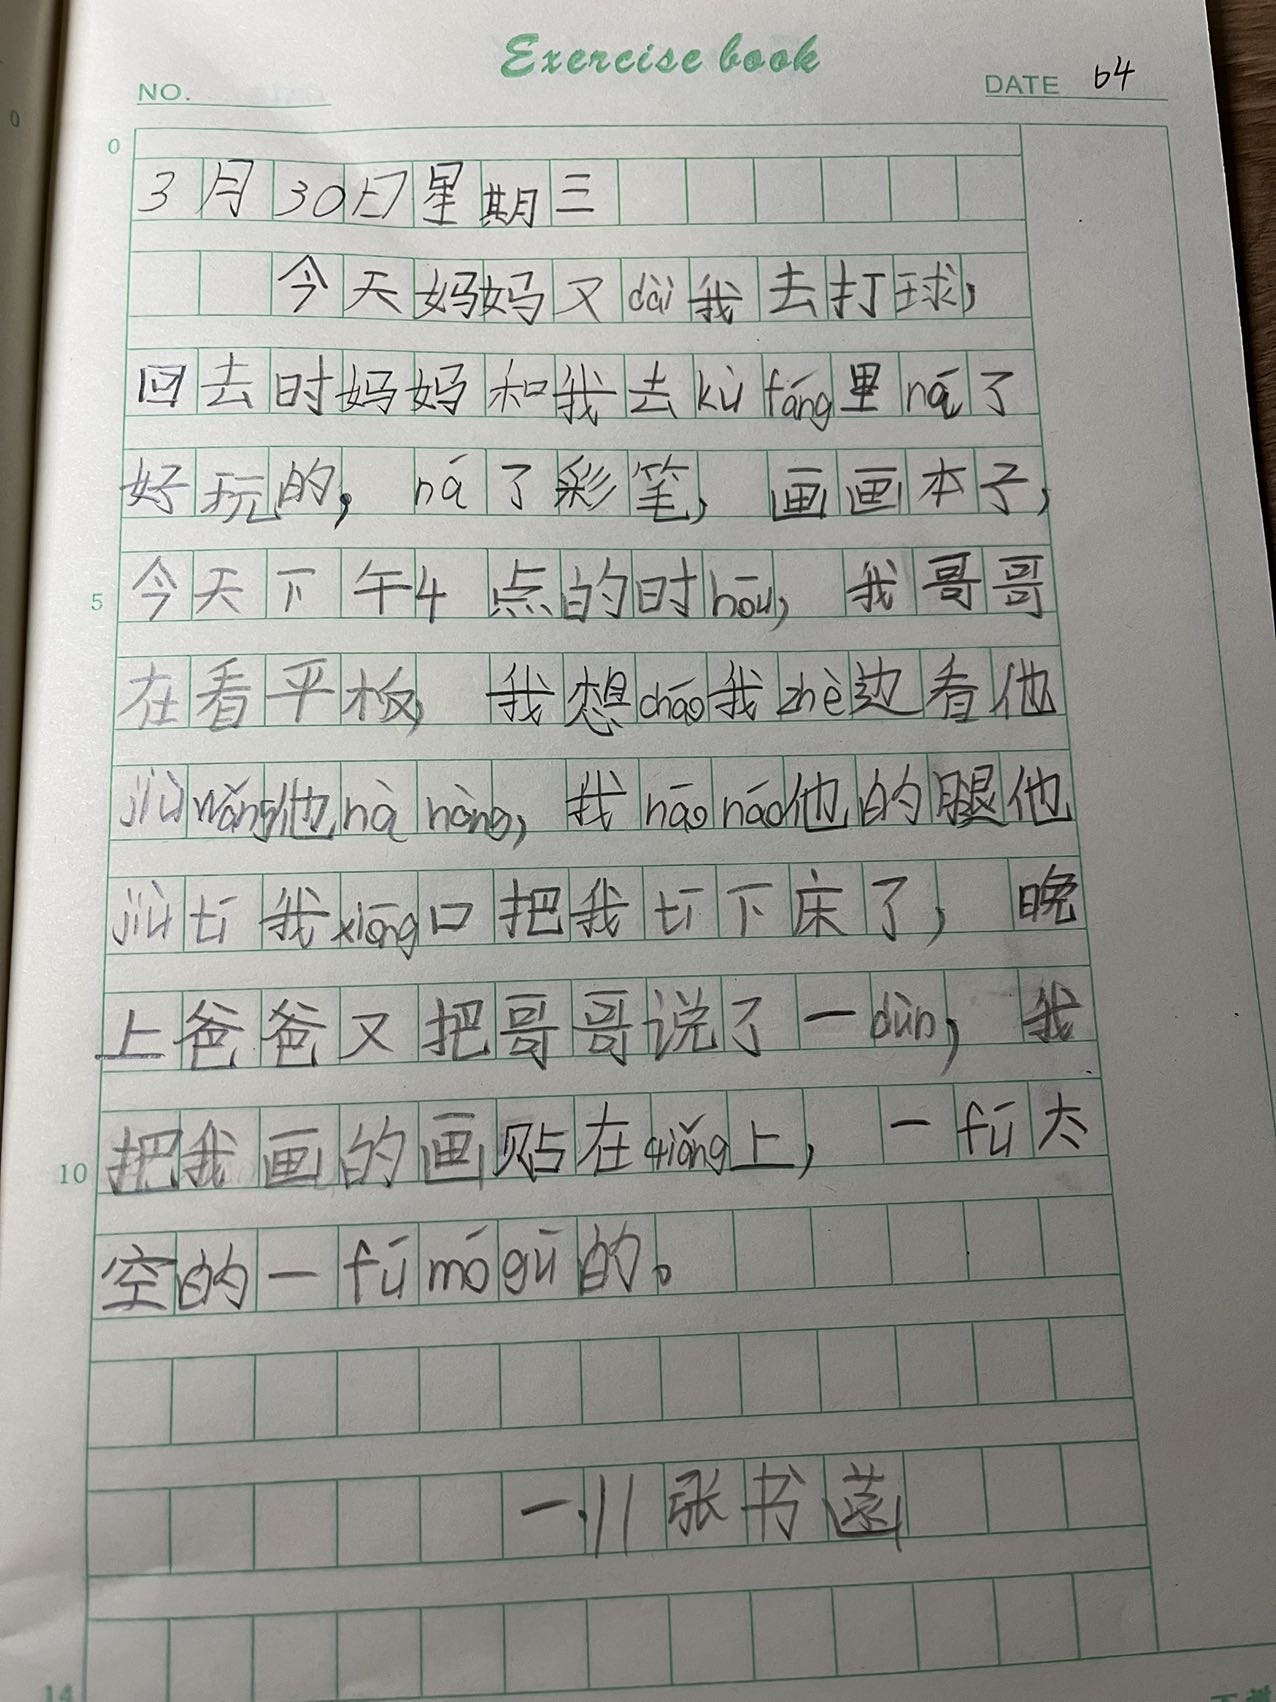 Exercise book
NO.
DATE 64
0
0
3月30日星期三
今天妈妈又dài我去打球，
回去时妈妈和我去kù fáng里ná了
好玩的，ná了彩笔，画画本子，
5
今天下午4点的时hōu，我哥哥
在看平板，我想cháo我zhè边看他
jiù wǎng他nà nàng，我nāo náo他的腿他
jiù tī我xiōng口把我tī下床了，晚
上爸爸又把哥哥说了一dùn，我
10
把我画的画贴在qiǎng上，一fú太
空的一fú mó gū的。
一.11张书
14